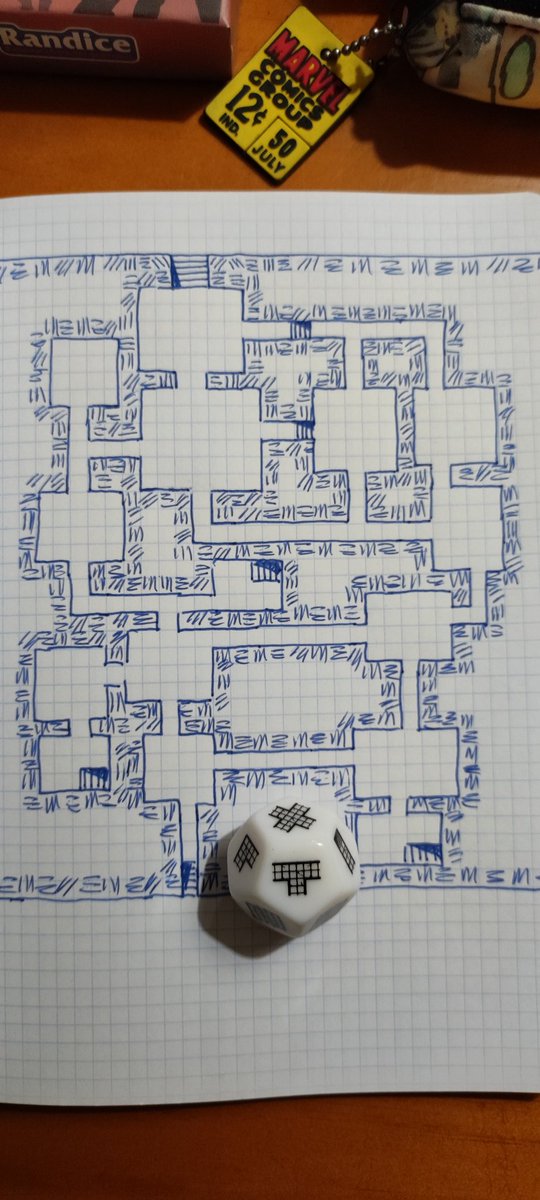 Randice
MARVEL
COMICS
GROUP
12¢
IND.
50
JULY